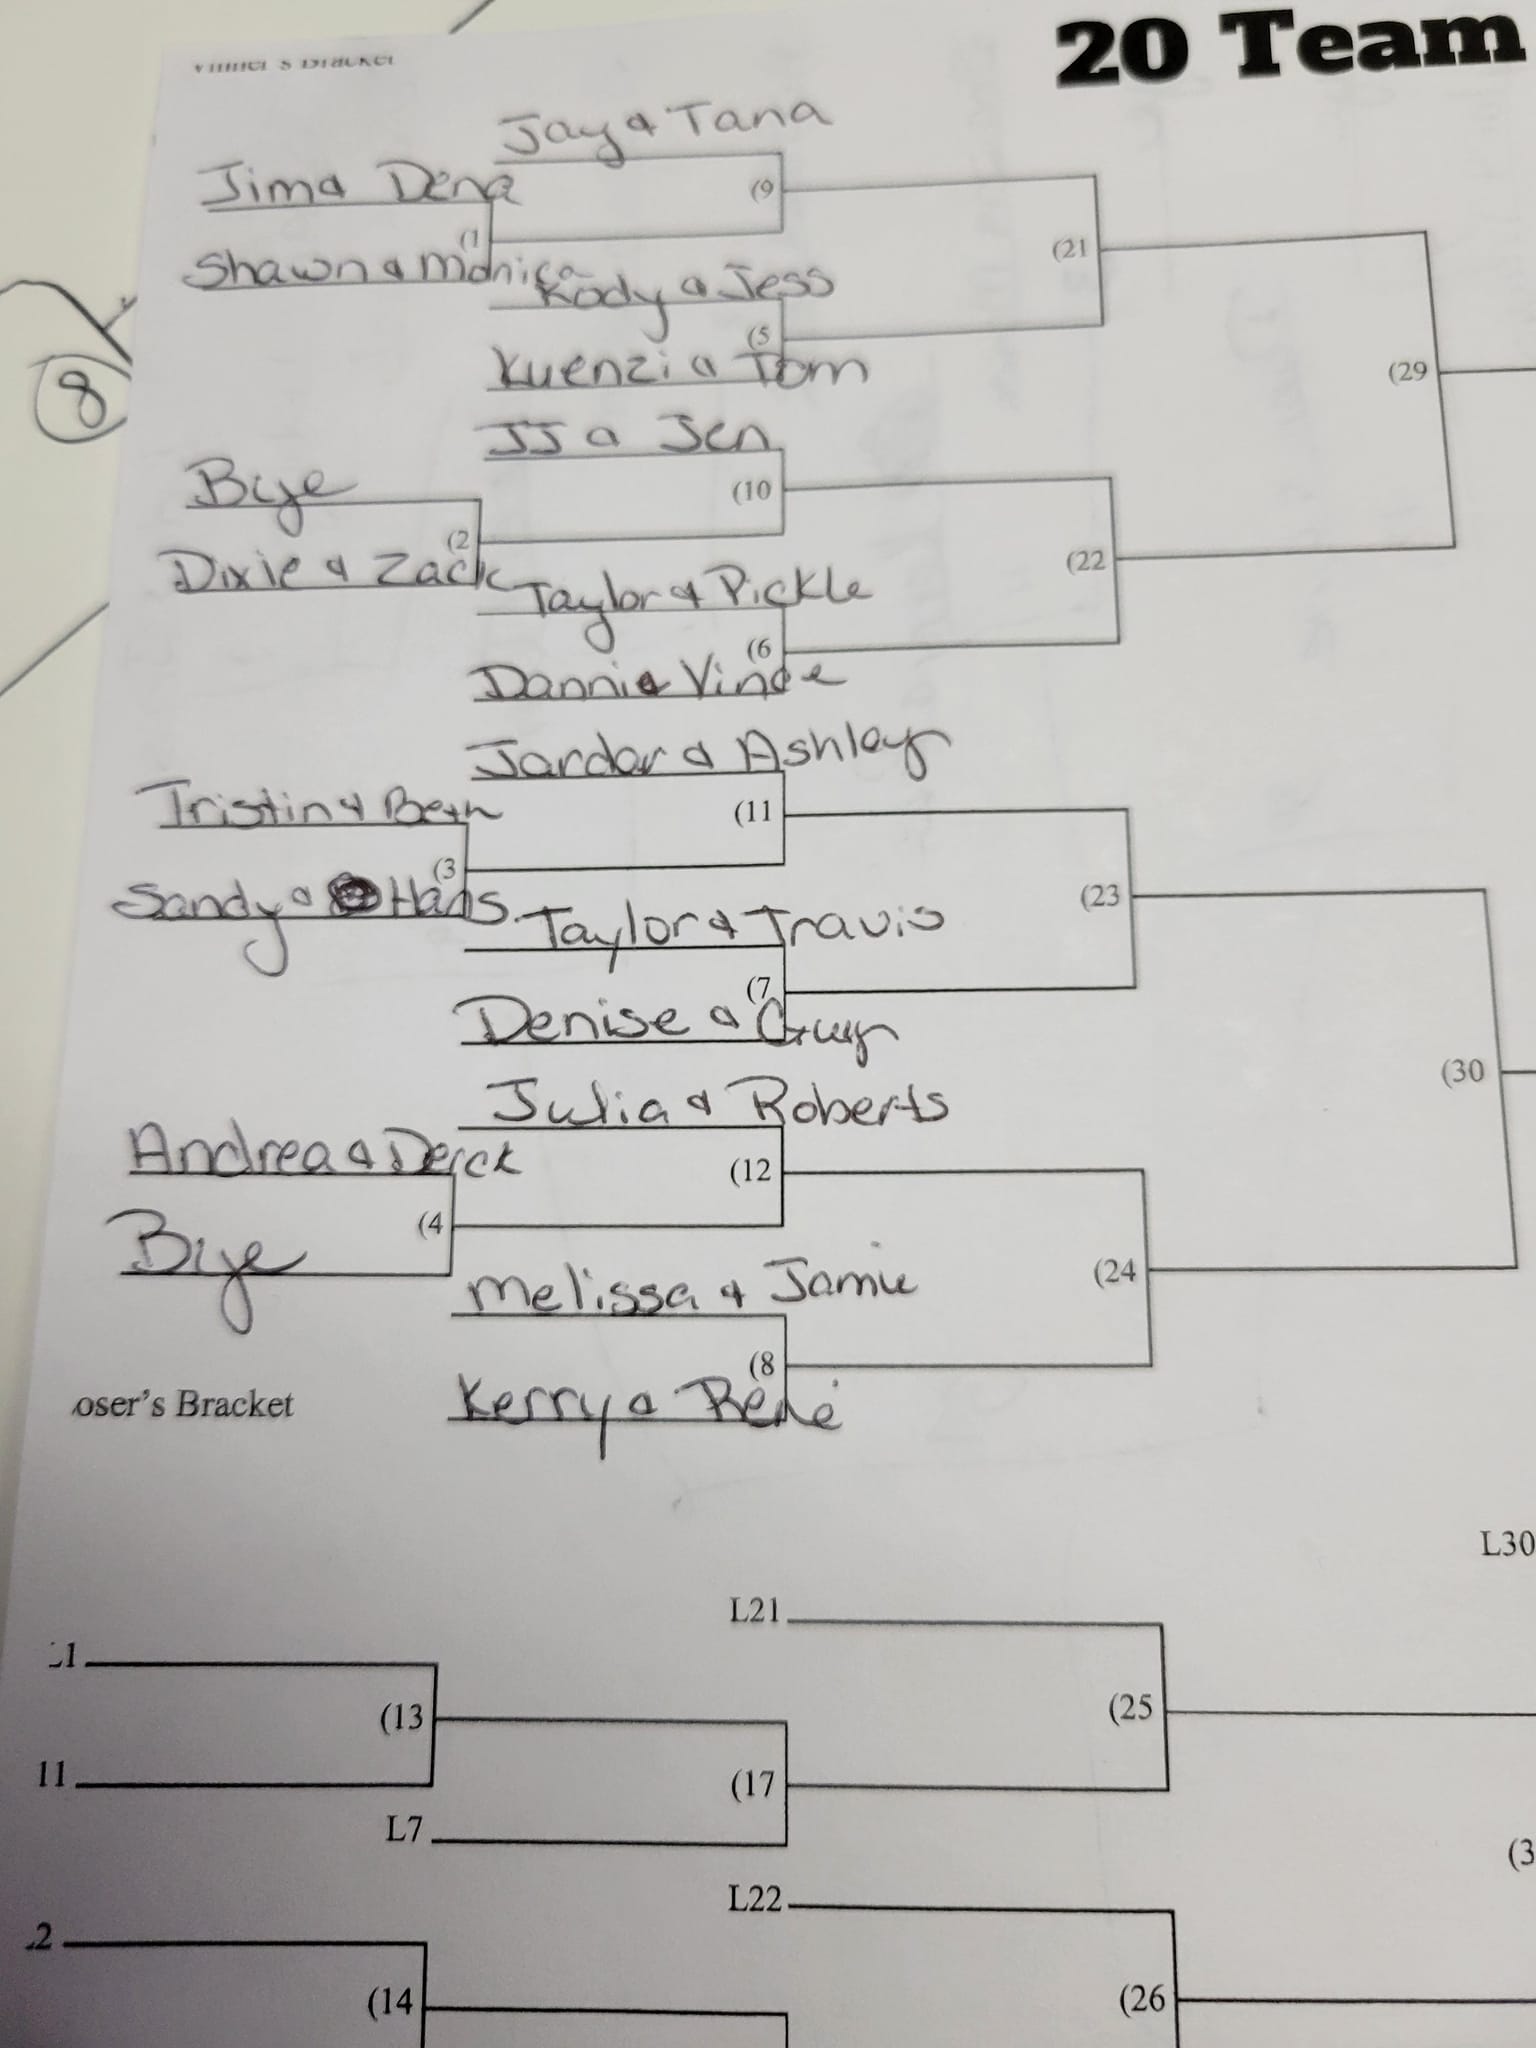 20 Team
Winner's Bracket
Jay & Tana
Jim & Dena
(9
(1
Shawn & Monica
(21
Kody & Jess
(5
Kuenzi & Tom
(29
8
JJ & Jen
Bye
(10
(2
Dixie & Zack
(22
Taylor & Pickle
(6
Danni & Vince
Jardar & Ashley
Tristin & Beth
(11
(3
Sandy & Hans
(23
Taylor & Travis
(7
Denise & Guy
(30
Julia & Roberts
Andrea & Derek
(12
(4
Bye
(24
Melissa & Jamie
(8
Kerry & René
oser's Bracket
L30
L21
L1
(13
(25
11
(17
L7
(3
L22
2
(14
(26